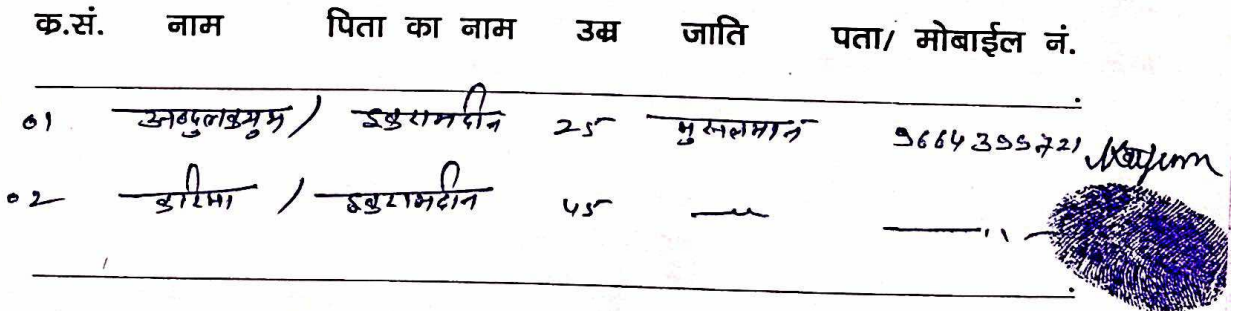 क्र.सं. नाम पिता का नाम उम्र जाति पता/ मोबाईल नं.
01 अब्दुलकयुम / इकरामदीन 25 मुसलमान 9664399721 Kayum
02 करिमा / इकरामदीन 45 —〃 —〃—